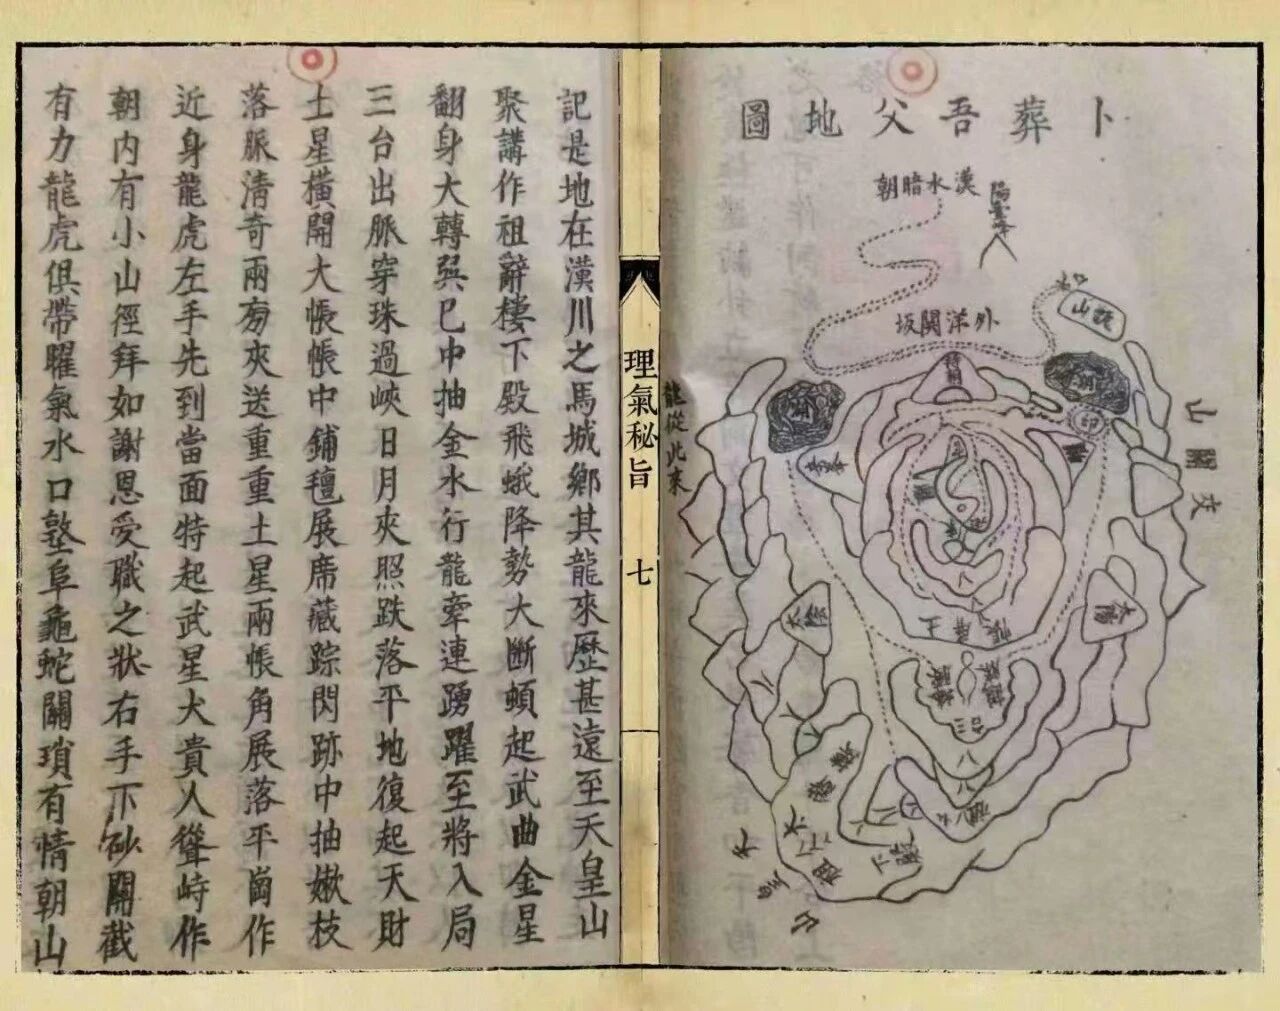 卜葬吾父地圖
漢水暗朝
陽臺峰
外洋関坂
龍從此來
山關交
太陰
太陽
印
下殿
天皇山
理氣秘旨
七
記是地在漢川之馬城鄉其龍來歷甚遠至天皇山
聚講作祖辭樓下殿飛蛾降勢大斷頓起武曲金星
翻身大轉巽巳中抽金水行龍牽連踴躍至將入局
三台出脈穿珠過峽日月夾照跌落平地復起天財
土星橫開大帳帳中鋪氊展席藏踪閃跡中抽嫩枝
落脈清奇兩旁夾送重重土星兩帳角展落平崗作
近身龍虎左手先到當面特起武星大貴人聳峙作
朝內有小山徑拜如謝恩受職之狀右手下砂關截
有力龍虎俱帶曜氣水口墪阜龜蛇關瑣有情朝山